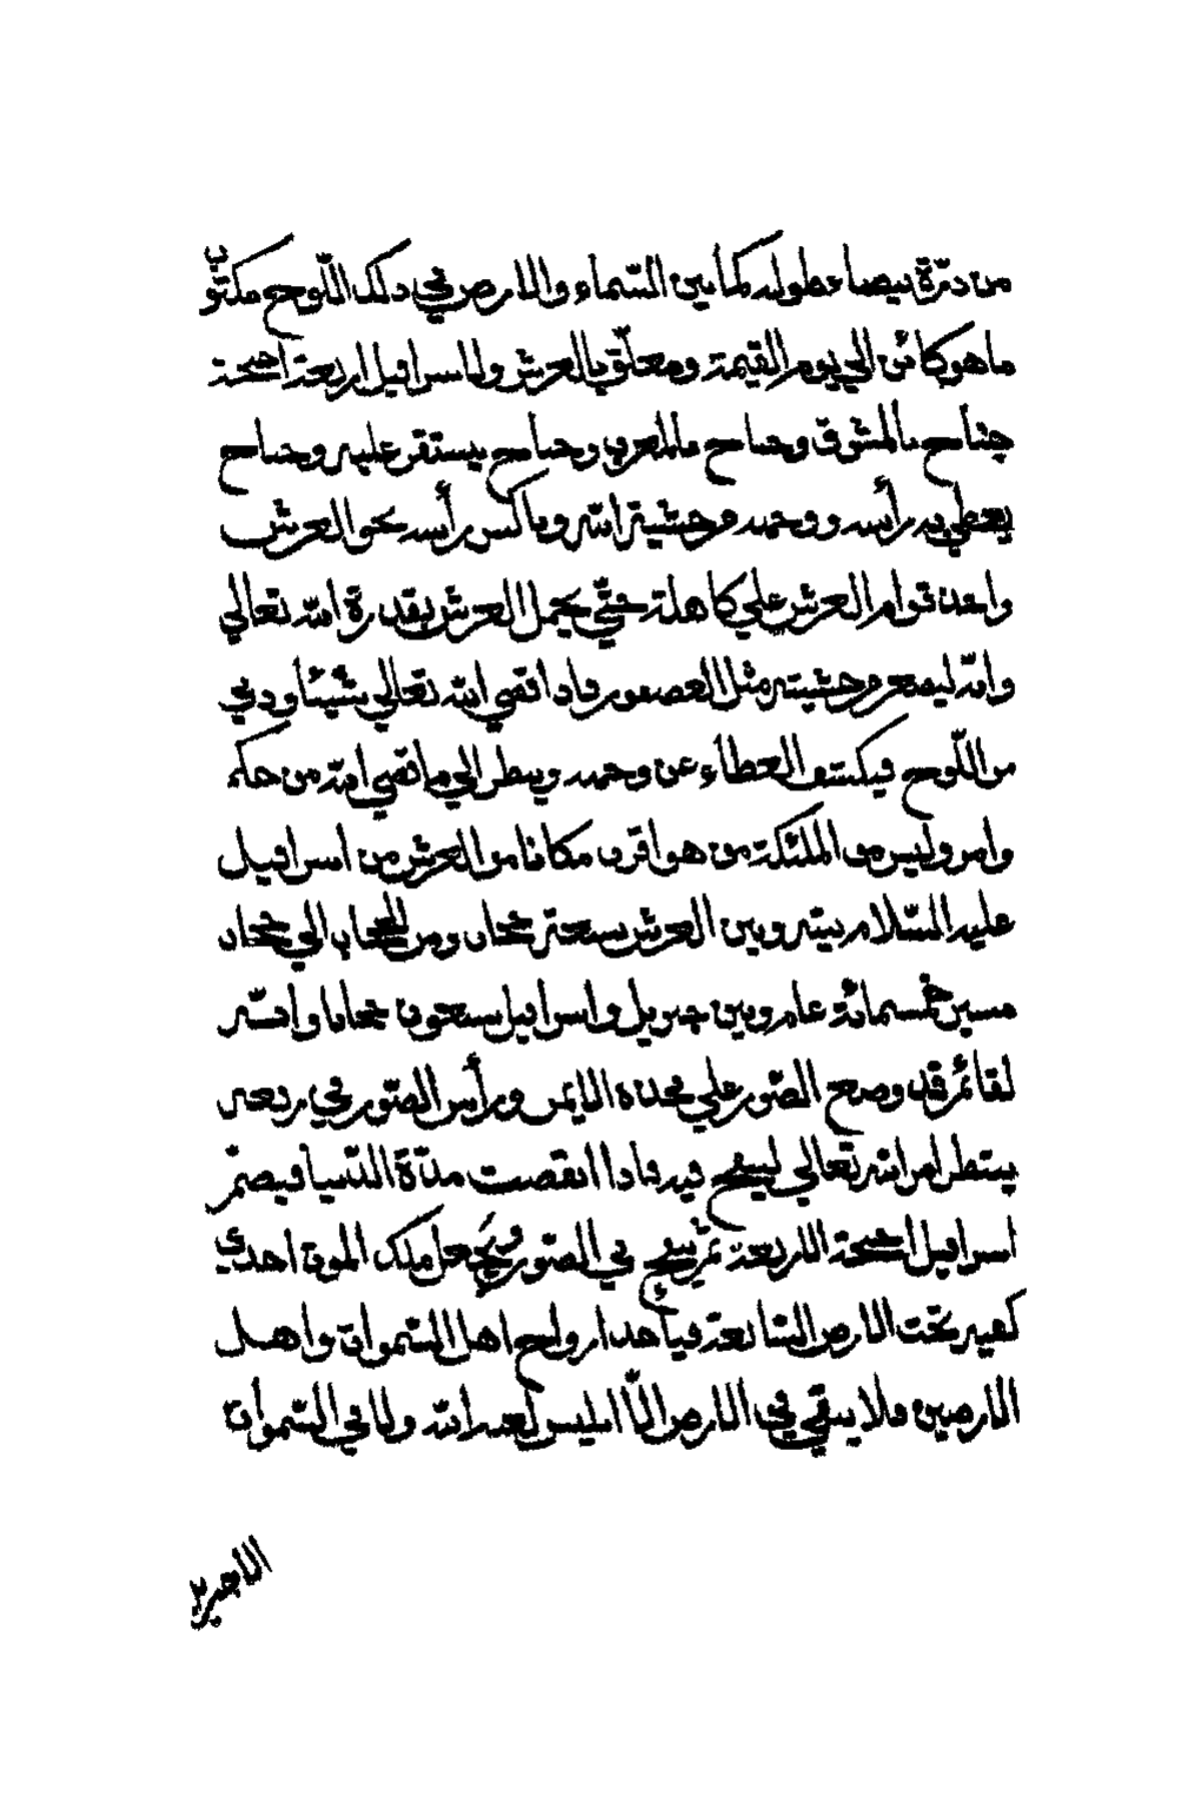 من درّة بيضاء طوله كما بين السّماء والارض في ذلك اللّوح مكتوب
ما هو كائن الي يوم القيمة ومعلّق بالعرش ولاسرافيل اربعة اجنحة
جناح بالمشرق وجناح بالمغرب وجناح يستقر عليه وجناح
يغطي به رأسه ووجهه من خشية الله وناكس رأسه نحو العرش
واخذ قوام العرش علي كاهله حتّي يحمل العرش بقدرة الله تعالي
وانّه ليصغر من خشيته مثل العصفور فاذا قضي الله تعالي شيئا ودني
من اللّوح فيكشف الغطاء عن وجهه وينظر الي ما قضي الله من حكم
وامر وليس من الملئكة من هو اقرب مكانا من العرش من اسرافيل
عليه السّلام بينه وبين العرش سبعة حجاب ومن الحجاب الي حجاب
مسيرة خمسمائة عام وبين جبريل واسرافيل سبعون حجابا وانّه
لقائم قد وضع الصّور علي فخذه الايمن ورأس الصّور في
ينتظر امر الله تعالي لينفخ فيه فاذا انقضت مدّة الدّنيا فيضمّ
اسرافيل اجنحة الاربعة ثمّ ينفخ في الصّور ويجعل ملك الموت احدي
كفيه تحت الارض السّابعة فيأخذ ارواح اهل السّموات واهل
الارضين ولا يبقي في الارض الّا ابليس لعنه الله ولا في السّموات